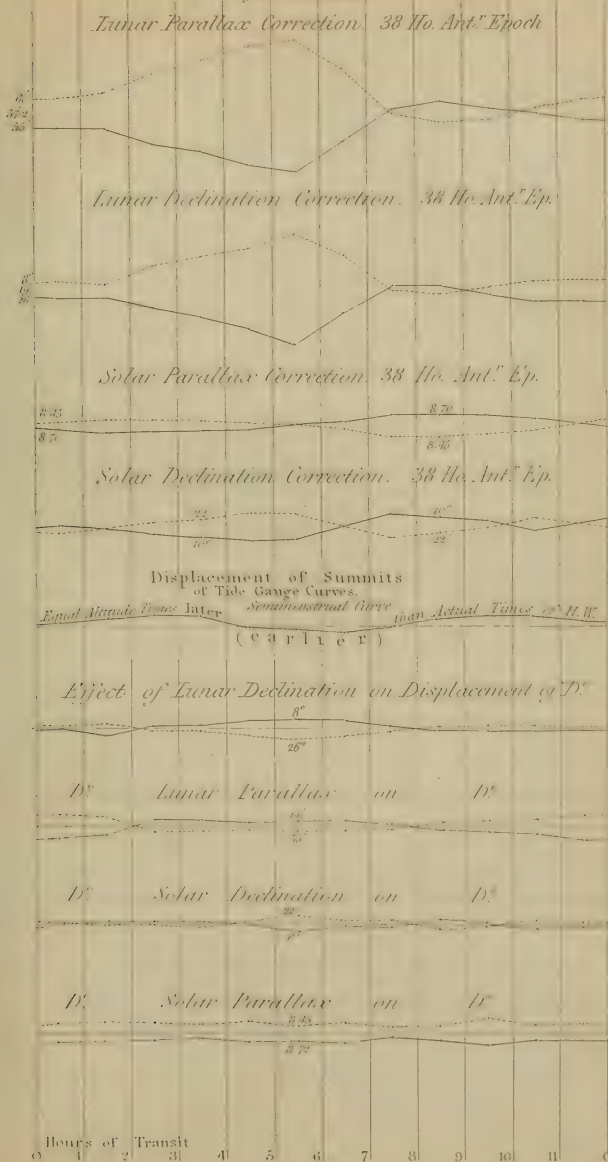 Lunar Parallax Correction. 38 Ho. Antr. Epoch
57.2
55
Lunar Declination Correction. 38 Ho. Antr. Ep.
8°
Solar Parallax Correction. 38 Ho. Antr. Ep.
8.45 8.70
8.70 8.45
Solar Declination Correction. 38 Ho. Antr. Ep.
22
22
Displacement of Summits
of Tide Gauge Curves.
Equal Altitude Times later Semimenstrual Curve than Actual Times of H.W.
(earlier)
Effect of Lunar Declination on Displacement of Do.
8°
26°
Do. Lunar Parallax on Do.
Do. Solar Declination on Do.
22
Do. Solar Parallax on Do.
8.45
8.70
Hours of Transit
0 1 2 3 4 5 6 7 8 9 10 11 0